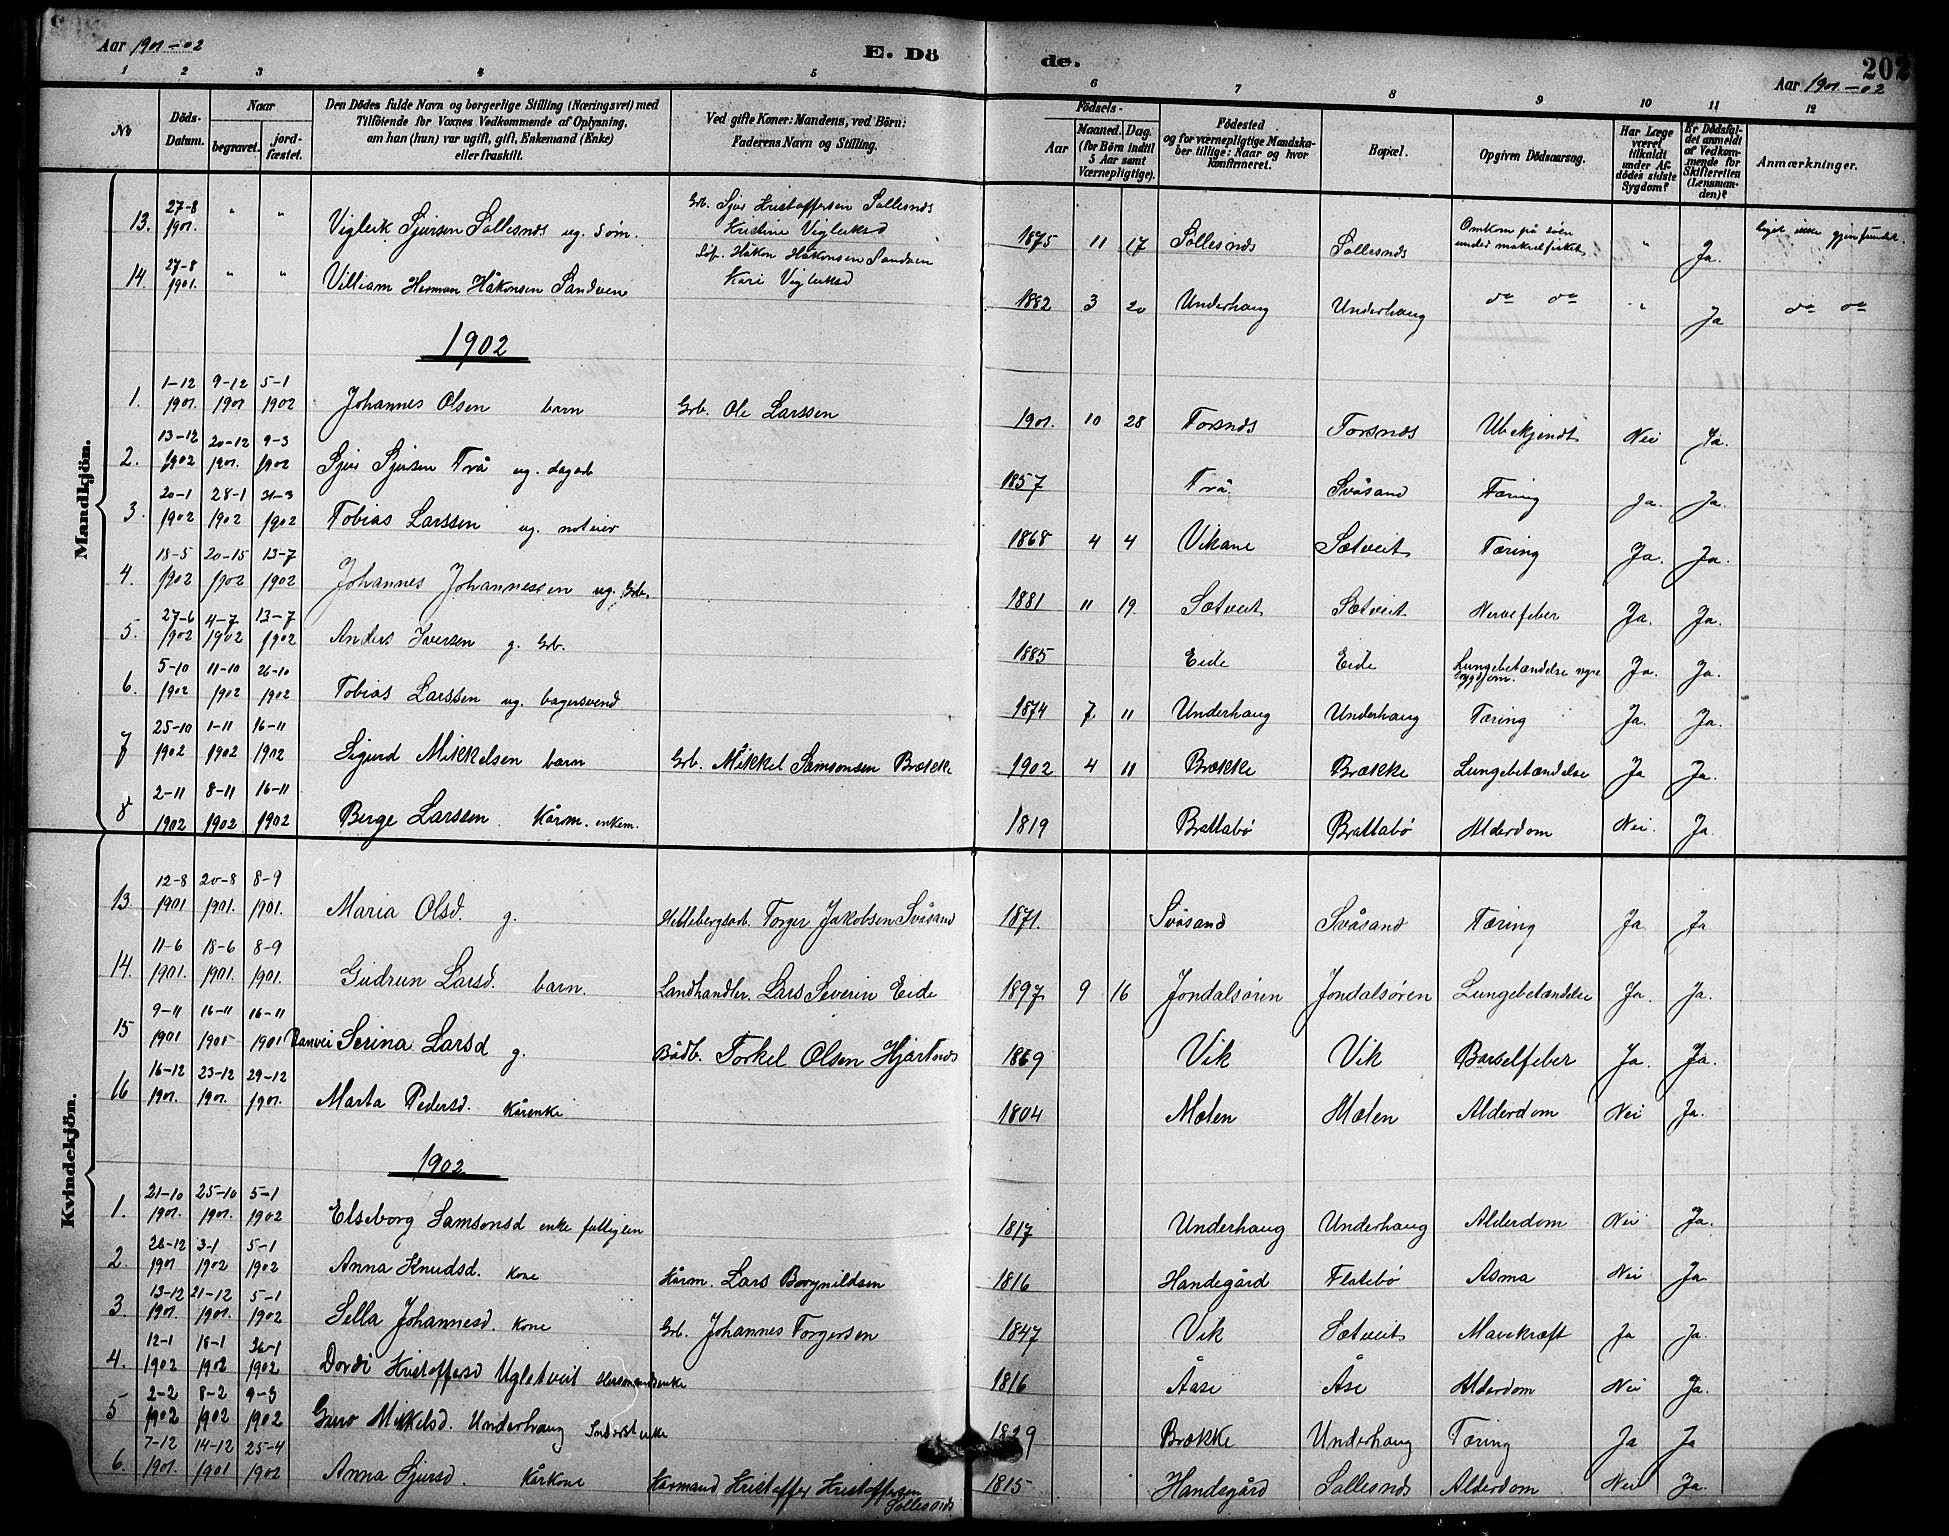 Aar 1901-02
E. Döde.
Aar 1901-02
202
1 2 3 4 5 6 7 8 9 10 11 12
No
Döds-Datum.
Naar
begravet.
jord-fæstet.
Den Dödes fulde Navn og borgerlige Stilling (Næringsvei) med
Tilföiende for Voxnes Vedkommende af Oplysning,
om han (hun) var ugift, gift, Enkemand (Enke)
eller fraskilt.
Ved gifte Koner: Mandens, ved Börn:
Faderens Navn og Stilling.
Födsels-
Aar
Maaned. Dag.
(for Börn indtil
5 Aar samt
Værnepligtige).
Födested
og for værnepligtige Mandska-
ber tillige: Naar og hvor
konfirmeret.
Bopæl.
Opgiven Dödsaarsag.
Har Læge
været
tilkaldt
under Af-
dödes sidste
Sygdom?
Er Dödsfal-
det anmeldt
af Vedkom-
mende for
Skifteretten
(Lensman-
den)?
Anmærkninger.
Mandkjön.
13. 27-8 1901. " " Viglerk Sjursen Sollesnes ug. söm. Grb. Sjur Kristoffersen Sollesnes Kristine Viglerksd 1875 11 17 Sollesnes Sollesnes Omkom på söen under makrelfisket " Ja. liget ikke gjenfundet.
14. 27-8 1901. " " Villiam Herman Håkonsen Sandven Håkon Håkonsen Sandven Kari Viglerksd 1882 3 20 Underhaug Underhaug do do " Ja do do
1902
1. 1-12 1901. 9-12 1901 5-1 1902 Johannes Olsen barn Grb. Ole Larssen 1901. 10 28 Torsnes Torsnes Ubekjendt Nei Ja.
2. 13-12 1902 20-12 1901. 9-3 1902 Sjur Sjursen Trå ug. dagarb 1857 Trå Svåsand Tæring Ja. Ja.
3. 20-1 1902 28-1 1902 31-3 1902 Tobias Larssen ug. noteier 1868 4 4 Vikane Sætveit Tæring Ja. Ja.
4. 18-5 1902 20-15 1902 13-7 1902 Johannes Johannessen ug. Grb. 1881 11 19. Sætveit Sætveit Nervefeber Ja. Ja.
5. 27-6 1902 4-7 1902 13-7 1902 Anders Iversen g. Grb. 1885 Eide Eide Lungebetændelse nyresygdom. Ja. Ja.
6. 5-10 1902 11-10 1902 26-10 1902 Tobias Larssen ug. bagersvend 1874 7 11 Underhaug Underhaug Tæring Ja. Ja.
7 25-10 1902 1-11 1902 16-11 1902 Sigurd Mikkelsen barn Grb. Mikkel Samsonsen Brække 1902 4 11 Brække Brække Lungebetændelse Ja Ja.
8 2-11 1902 8-11 1902 16-11 1902 Berge Larssen Kårm. enkem. 1819 Brattabø Brattabø Alderdom Nei. Ja
Kvindekjön.
13. 12-8 1901 20-8 1901. 8-9 1901. Maria Olsd. g. Hellebergsarb. Torger Jakobsen Svåsand 1871. Svåsand Svåsand Tæring Ja Ja
14. 11-6 1901. 18-6 1901. 8-9 1901. Gudrun Larsd. barn. Landhandler. Lars Severin Eide 1897 9 16 Jondalsören Jondalsören Lungebetændelse Ja. Ja.
15 9-11 1901 16-11 1901 16-11 1901 Ranvei Serina Larsd g. Bådb. Torkel Olsen Hjartnes 1869 Vik Vik Barselfeber Ja. Ja.
16 16-12 1901. 23-12 1901. 29-12 1901. Marta Pedersd. Kårenke 1804 Mælen Mælen Alderdom Nei Ja.
1902
1. 21-10 1901. 25-10 1901. 5-1 1902 Elseborg Samsonsd enke fattiglem 1817 Underhaug Underhaug Alderdom Nei Ja.
2. 28-12 1901 3-1 1902 5-1 1902 Anna Knudsd. Kone Kårm. Lars Borgnildsen 1816 Handegård Flatebø Asma Nei Ja
3 13-12 1901. 21-12 1901. 5-1 1902 Sella Johannesd. Kone Grb. Johannes Torgersen 1847 Vik Sætveit Mavekræft Ja Ja.
4. 12-1 1902 18-1 1902 26-1 1902 Dordi Kristoffersd Ugletveit 1816 Åse Åse Alderdom Nei Ja.
5 2-2 1902 8-2 1902 9-3 1902 Guro Mikkelsd. Underhaug Inderstenke 1829 Brække Underhaug Tæring Ja Ja
6. 7-12 1901. 14-12 1901 25-4 1902 Anna Sjursd. Kårkone Kårmand Kristoffer Kristoffersen Sollesnes 1815 Handegård Sollesnes Alderdom Nei Ja.